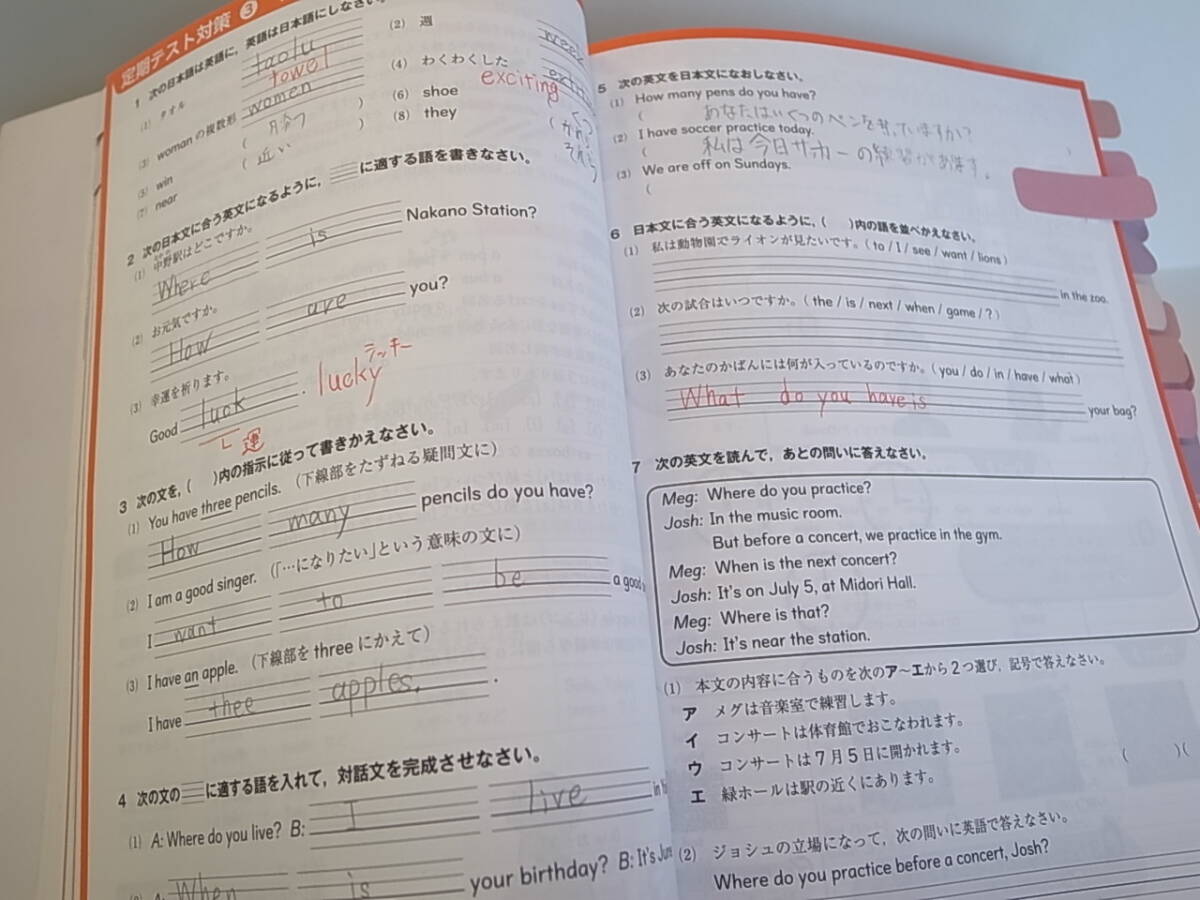 定期テスト対策 3
1 次の日本語は英語に，英語は日本語にしなさい。
(1) タオル taolu
towel
(2) 週 week
(3) womanの複数形 women
(4) わくわくした
exciting
(5) win ( 勝つ )
(6) shoe ( くつ
(7) near ( 近い )
(8) they (
2 次の日本文に合う英文になるように，に適する語を書きなさい。
(1) 中野駅はどこですか。
Where is Nakano Station?
(2) お元気ですか。
How are you?
(3) 幸運を祈ります。
Good luck .
lucky
ラッキー
運
3 次の文を，( )内の指示に従って書きかえなさい。
(1) You have three pencils. (下線部をたずねる疑問文に)
How many pencils do you have?
(2) I am a good singer. (「…になりたい」という意味の文に)
I want to be a good
(3) I have an apple. (下線部を three にかえて)
I have thee apples. .
4 次の文のに適する語を入れて，対話文を完成させなさい。
(1) A: Where do you live? B: I live in
A: When is your birthday? B: It's
5 次の英文を日本文になおしなさい。
(1) How many pens do you have?
( あなたはいくつのペンを持っていますか?
(2) I have soccer practice today.
( 私は今日サッカーの練習があります。 )
(3) We are off on Sundays.
(
6 日本文に合う英文になるように，( )内の語を並べかえなさい。
(1) 私は動物園でライオンが見たいです。( to / I / see / want / lions )
in the zoo.
(2) 次の試合はいつですか。( the / is / next / when / game / ? )
(3) あなたのかばんには何が入っているのですか。( you / do / in / have / what )
What do you have is your bag?
7 次の英文を読んで，あとの問いに答えなさい。
Meg: Where do you practice?
Josh: In the music room.
But before a concert, we practice in the gym.
Meg: When is the next concert?
Josh: It's on July 5, at Midori Hall.
Meg: Where is that?
Josh: It's near the station.
(1) 本文の内容に合うものを次のア～エから2つ選び，記号で答えなさい。
ア メグは音楽室で練習します。
イ コンサートは体育館でおこなわれます。
ウ コンサートは7月5日に開かれます。
エ 緑ホールは駅の近くにあります。
( )(
(2) ジョシュの立場になって，次の問いに英語で答えなさい。
Where do you practice before a concert, Josh?